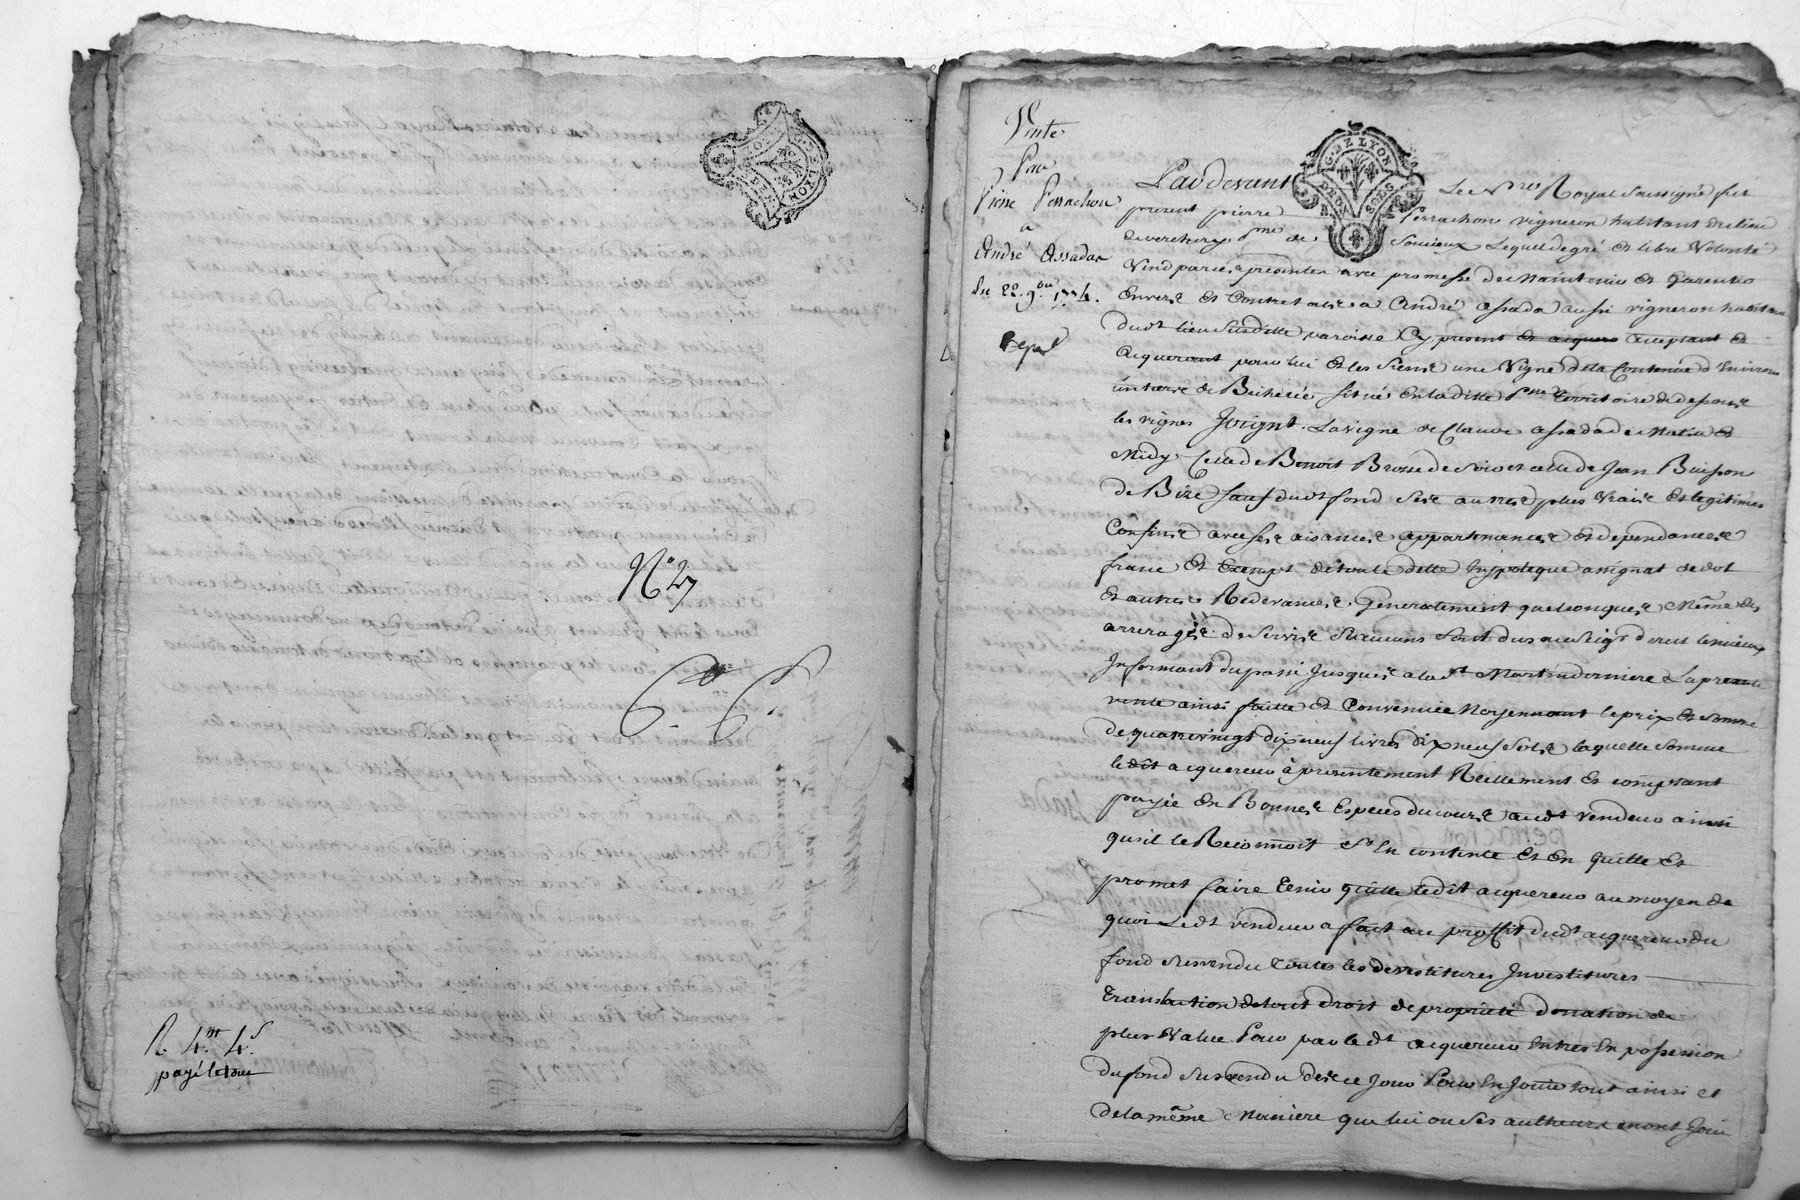 N° 27
R. 4.tt 4.s
payé le tout
Vente
Par
Pierre Perrachon
a
André Assadas
Du 22. 9.bre 1774.
Expé
G. DE LYON
DEUX SOLS
Pardevant Le N.re Royal soussigné fut
present pierre Perrachon vigneron habitant du lieu
de verchery p.sse de Soucieux Lequel de gré et libre volonté
Vend par ces presentes avec promesse de maintenir et Garentir
Envers et Contre tous a André assada aussi vigneron habitant
dudt lieu susditte paroisse Cy present et acquero acceptant et
acquerant pour lui et les siens une Vigne de la Contenue d'Environ
un tiers de Bicherée située En la ditte p.sse Territoire de dessous
les vignes Joignt. La vigne de Claude assada de matin et
midy Celle de Benoit Brosse de soir et celle de Jean Buisson
de Bize sauf dudt fond ses autres plus vrais et legitimes
Confins avec ses aisances appartenances et dependances
franc et Exempt de toute dette hypoteque assignat de dot
et autres Redevances Generalement quelconques même des
arrerages de servis si aucuns sont dus au seigr. direct
Informant du passé Jusques a la st Martin derniere La presente
vente ainsi faitte et Convenuée moyennant le prix et somme
de quatrevingt dixneuf livres dixneuf sols laquelle somme
ledit acquereur à presentement Réellement et comptant
payée En Bonnes Especes du cours audt vendeur ainsi
qu'il le Reconnoit s'En contente et En quitte et
promet faire tenir quitte ledit acquereur au moyen de
quoi Ledt vendeur a fait au proffit dudt acquereur du
fond susvendu toutes les devestitures Investitures
translation de tout droit de proprieté donation de
plus value Pour par ledt acquereur Entrer En possession
du fond susvendu dès ce Jour Pour En Jouir tout ainsi et
de la même maniere que lui ou ses autheurs en ont Joui